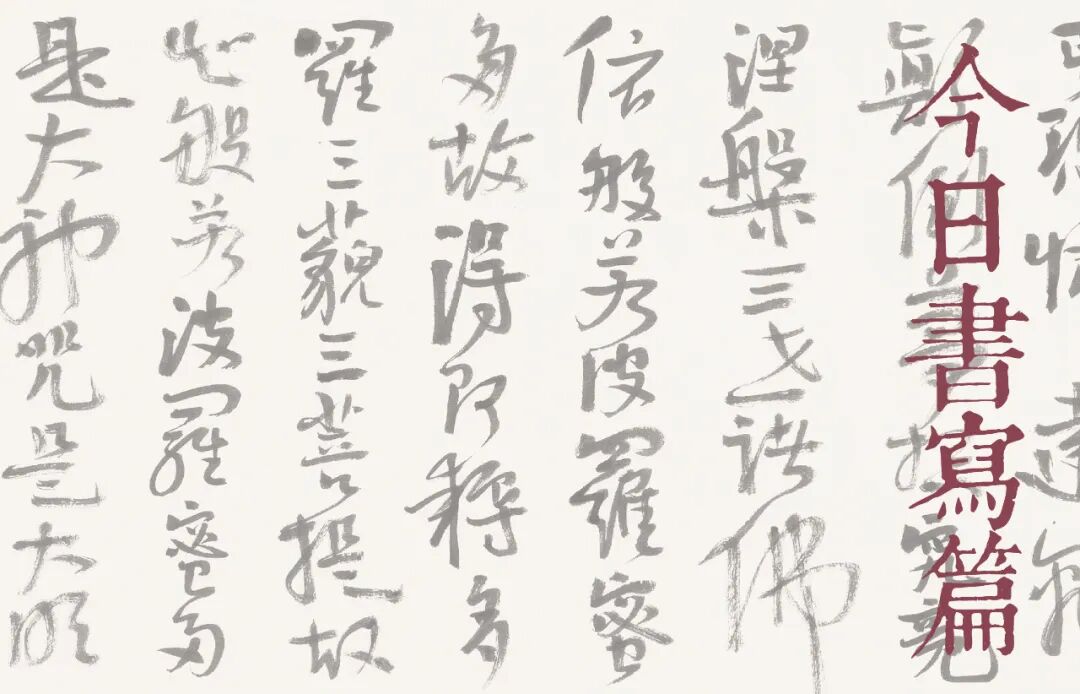 今日書寫篇
顛倒夢想究竟
涅槃三世諸佛
依般若波羅蜜
多故得阿耨多
羅三藐三菩提故
知般若波羅蜜多
是大神咒是大明